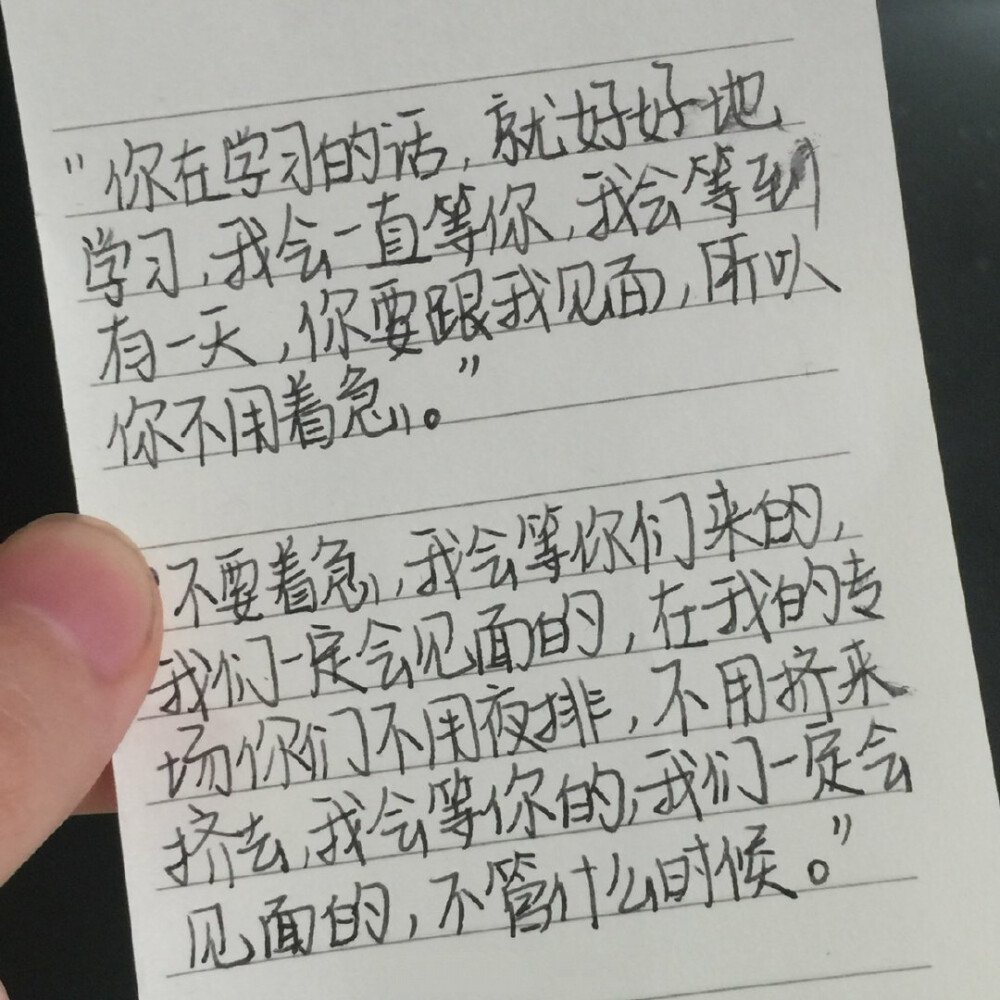 "你在学习的话,就好好地
学习,我会一直等你,我会等到
有一天,你要跟我见面,所以
你不用着急。"
不要着急,我会等你们来的,
我们一定会见面的,在我的专
场你们不用夜排,不用挤来
挤去,我会等你的,我们一定会
见面的,不管什么时候。"